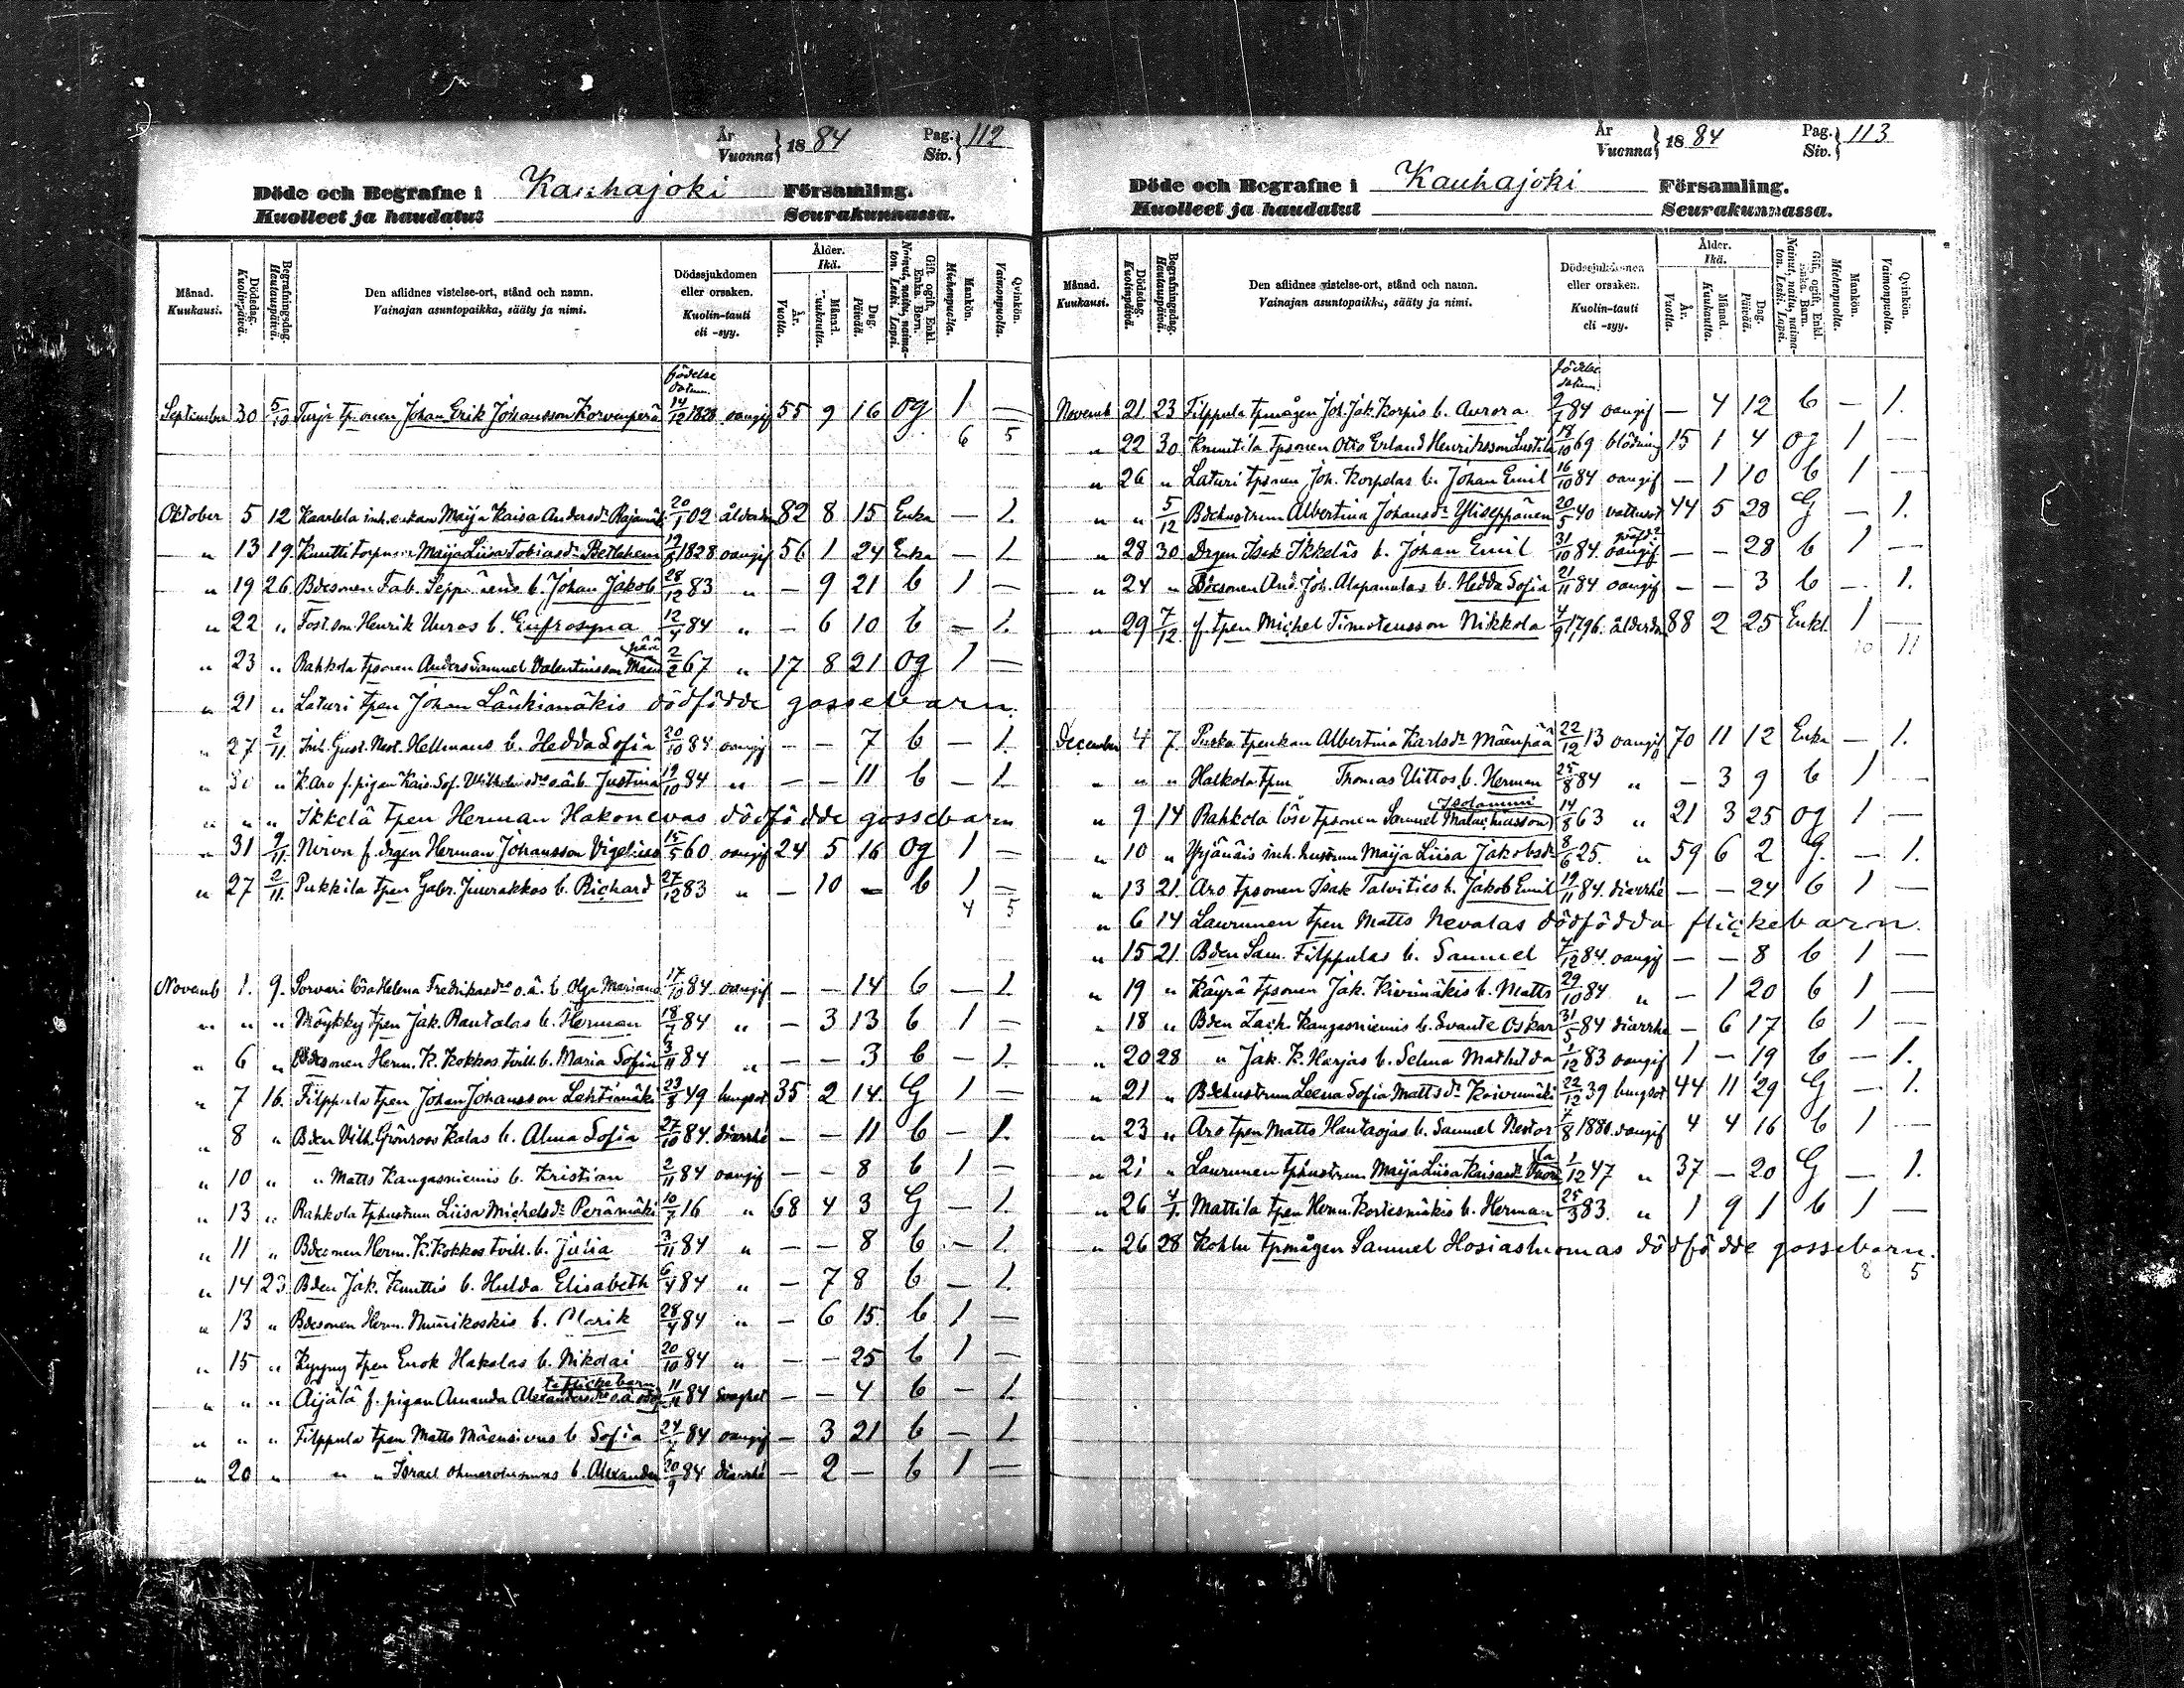 År
Vuonna } 1884 Pag.
Siv. } 112
Döde och Begrafne i Kauhajoki Församling.
Kuolleet ja haudatut Seurakunnassa.
Månad. Kuukausi. Dödsdag. Kuolinpäivä. Begrafningsdag. Hautauspäivä. Den aflidnes vistelse-ort, stånd och namn. Vainajan asuntopaikka, sääty ja nimi. Dödssjukdomen eller orsaken. Kuolin-tauti eli -syy. Ålder. Ikä. År. Vuotta. Månad. Kuukautta. Dag. Päivää. Gift, ogift, Enkl. Enka. Barn. Nainut, naitu, naima-ton. Leski. Lapsi. Mankön. Miehenpuolta. Qvinkön. Vaimonpuolta.
födelse datum
September 30 5/10 Turja tpsonen Johan Erik Johansson Korvenperä 14/12 1828 oangif 55 9 16 og 1 —
6 5
Oktober 5 12 Kaarlela inh.enkan Maija Kaisa Andersdr Rajamäki 20/1 02 ålderdm 82 8 15 Enka — 1.
" 13 19. Knutti Maija Liisa Tobiasdr Betlehem 1828 oangif 56 1 24 Enka — 1
" 19 26 Bdesonen Fab. Seppänens b. Johan Jakob 28/12 83 " — 9 21 b 1 —
" 22 " Henrik Uuros b. Eufrosyna 12/4 84 " — 6 10 b — 1.
" 23 " Rahkola tpsonen Anders Samuel Valentinsson Mäenpää 2/2 67 " 17 8 21 og 1 —
" 21 " Laturi tpen Johan Länkimäkis dödfödde gossebarn.
" 27 2/11. Inh. Gust. Nest. Hellmans b. Hedda Sofia 20/10 84 oangif — — 7 b — 1.
" " K. Aro f. pigan Kais. Sof. o.ä. b. Justina 19/10 84 " — — 11 b — 1.
" " " Ikkelä tpen Herman Hakonevas dödfödde gossebarn
" 31 9/11. f. drgen Herman Johansson Vigelius 15/5 60 oangif 24 5 16 Og 1 —
" 27 2/11. Pukkila tpen Gabr. Juurakkos b. Richard 27/12 83 " — 10 — b 1 —
4 5
Novemb 1. 9. Sorvari Helena Fredriksdrs o.ä. b. Olga Mariana 17/10 84 oangif — — 14 b — 1.
" " " Möykky tpen Jak. Rantalas b. Herman 18/7 84 " — 3 13 b 1 —
" 6 " Bdesonen Herm. K. Kokkos tvill. b. Maria Sofia 3/11 84 " — — 3 b — 1.
" 7 16. Filppula tpen Johan Johansson Lehtimäki 23/8 49 lungsot 35 2 14. G 1 —
" 8 " Bden Vilh. Grönroos Katas b. Alma Sofia 27/10 84. diarrhé — — 11 b — 1.
" 10 " " Matts Kangasniemis b. Kristian 2/11 84 oangif — — 8 b 1 —
" 13 " Rahkola tphustrun Liisa Michelsdr Perämäki 10/7 16 " 68 4 3 G — 1.
" 11 " Bdesonen Herm. K. Kokkos tvill. b. Julia 3/11 84 " — — 8 b — 1.
" 14 23. Bden Jak. Knuttis b. Hulda Elisabeth 6/4 84 " — 7 8 b — 1.
" 13 " Bdesonen Herm. Nummikoskis b. Marik 28/4 84 " — 6 15 b 1 —
" 15 " Kyyny tpen Enok Hakolas b. Nikolai 20/10 84 " — — 25 b 1 —
" " " Äijälä f. pigan Amanda Alexandersdrs o.ä. flickebarn 11/11 84 Svaghet — — 4 b — 1.
" " " Filppula tpen Matts Mäensivus b. Sofia 84 oangif — 3 21 b — 1.
" 20 " " " Israel b. Alexander 20/9 84 diarrhé — 2 — b 1 —
År
Vuonna } 1884 Pag.
Siv. } 113
Döde och Begrafne i Kauhajoki Församling.
Kuolleet ja haudatut Seurakunnassa.
Månad. Kuukausi. Dödsdag. Kuolinpäivä. Begrafningsdag. Hautauspäivä. Den aflidnes vistelse-ort, stånd och namn. Vainajan asuntopaikka, sääty ja nimi. Dödssjukdomen eller orsaken. Kuolin-tauti eli -syy. Ålder. Ikä. År. Vuotta. Månad. Kuukautta. Dag. Päivää. Gift, ogift, Enkl. Enka. Barn. Nainut, naitu, naima-ton. Leski. Lapsi. Mankön. Miehenpuolta. Qvinkön. Vaimonpuolta.
födelse datum
Novemb 21. 23 Filppula tpmågen Joh. Jak. Korpis b. Aurora 84 oangif — 4 12 b — 1.
" 22 30 Knuutila tpsonen Otto Erland Henriksson Lustila 18/10 69 blödning 15 1 4 og 1 —
" 26 " Laturi tpsonen Joh. Korpelas b. Johan Emil 16/10 84 oangif — 1 10 b 1 —
" " 5/12 Bdehustrun Albertina Johansdr Yliseppänen 20/5 40 vattusot 44 5 28 G — 1.
" 28 30 Drgen Isak Ikkeläs b. Johan Emil 31/10 84. oangif — — 28 b 1 —
" 24 " Bdesonen And. Joh. Alapanulas b. Hedda Sofia 21/11 84 oangif — — 3 b — 1.
" 29 7/12 f. tpen Michel Timoteusson Nikkola 4/9 1796. ålderdm 88 2 25 Enkl. 1 —
10 11
December 4 7 Puska tpenkan Albertina Karlsdr Mäenpää 22/12 13 oangif 70 11 12 Enka — 1.
" " " Halkola tpen Thomas Uittos b. Herman 25/8 84 " — 3 9 b 1 —
" 9 14 Rahkola tpsonen Samuel Malachiasson Isolammi 14/8 63 " 21 3 25 og 1 —
" 10 " Yrjänäis inh. hustrun Maija Liisa Jakobsdr 8/6 25. " 59 6 2 G. — 1.
" 13 21. Aro tpsonen Isak Talvities b. Jakob Emil 19/11 84. diarrhé — — 24 b 1 —
" 6 14 Laurunen tpen Matts Nevalas dödfödda flickebarn.
" 15 21. Bden Sam. Filppulas b. Samuel 7/12 84. oangif — — 8 b 1 —
" 19 " Käyrä tpsonen Jak. Kivimäkis b. Matts 29/10 84. " — 1 20 b 1 —
" 18 " Bden Zach. Kangasniemis b. Svante Oskar 31/5 84 diarrhé — 6 17 b 1 —
" 20 28 " Jak. K. Harjas b. Selma Mathilda 1/12 83 oangif 1 — 19 b — 1.
" 21 " Bdehustrun Leena Sofia Mattsdr Koivumäki 22/12 39 lungsot 44 11 29 G — 1.
" 23 " Aro tpen Matts Hautaojas b. Samuel Nestor 7/8 1880. oangif 4 4 16 b 1 —
" 21 " Laurunen tphustrun Maija Liisa Kaisasdr 1/12 47 " 37 — 20 G — 1.
" 26 4/1. Mattila tpen Herm. Kortesmäkis b. Herman 25/3 83. " 1 9 1 b 1 —
" 26 28 Kohlu tpmågen Samuel Hosiasluomas dödfödde gossebarn.
8 5